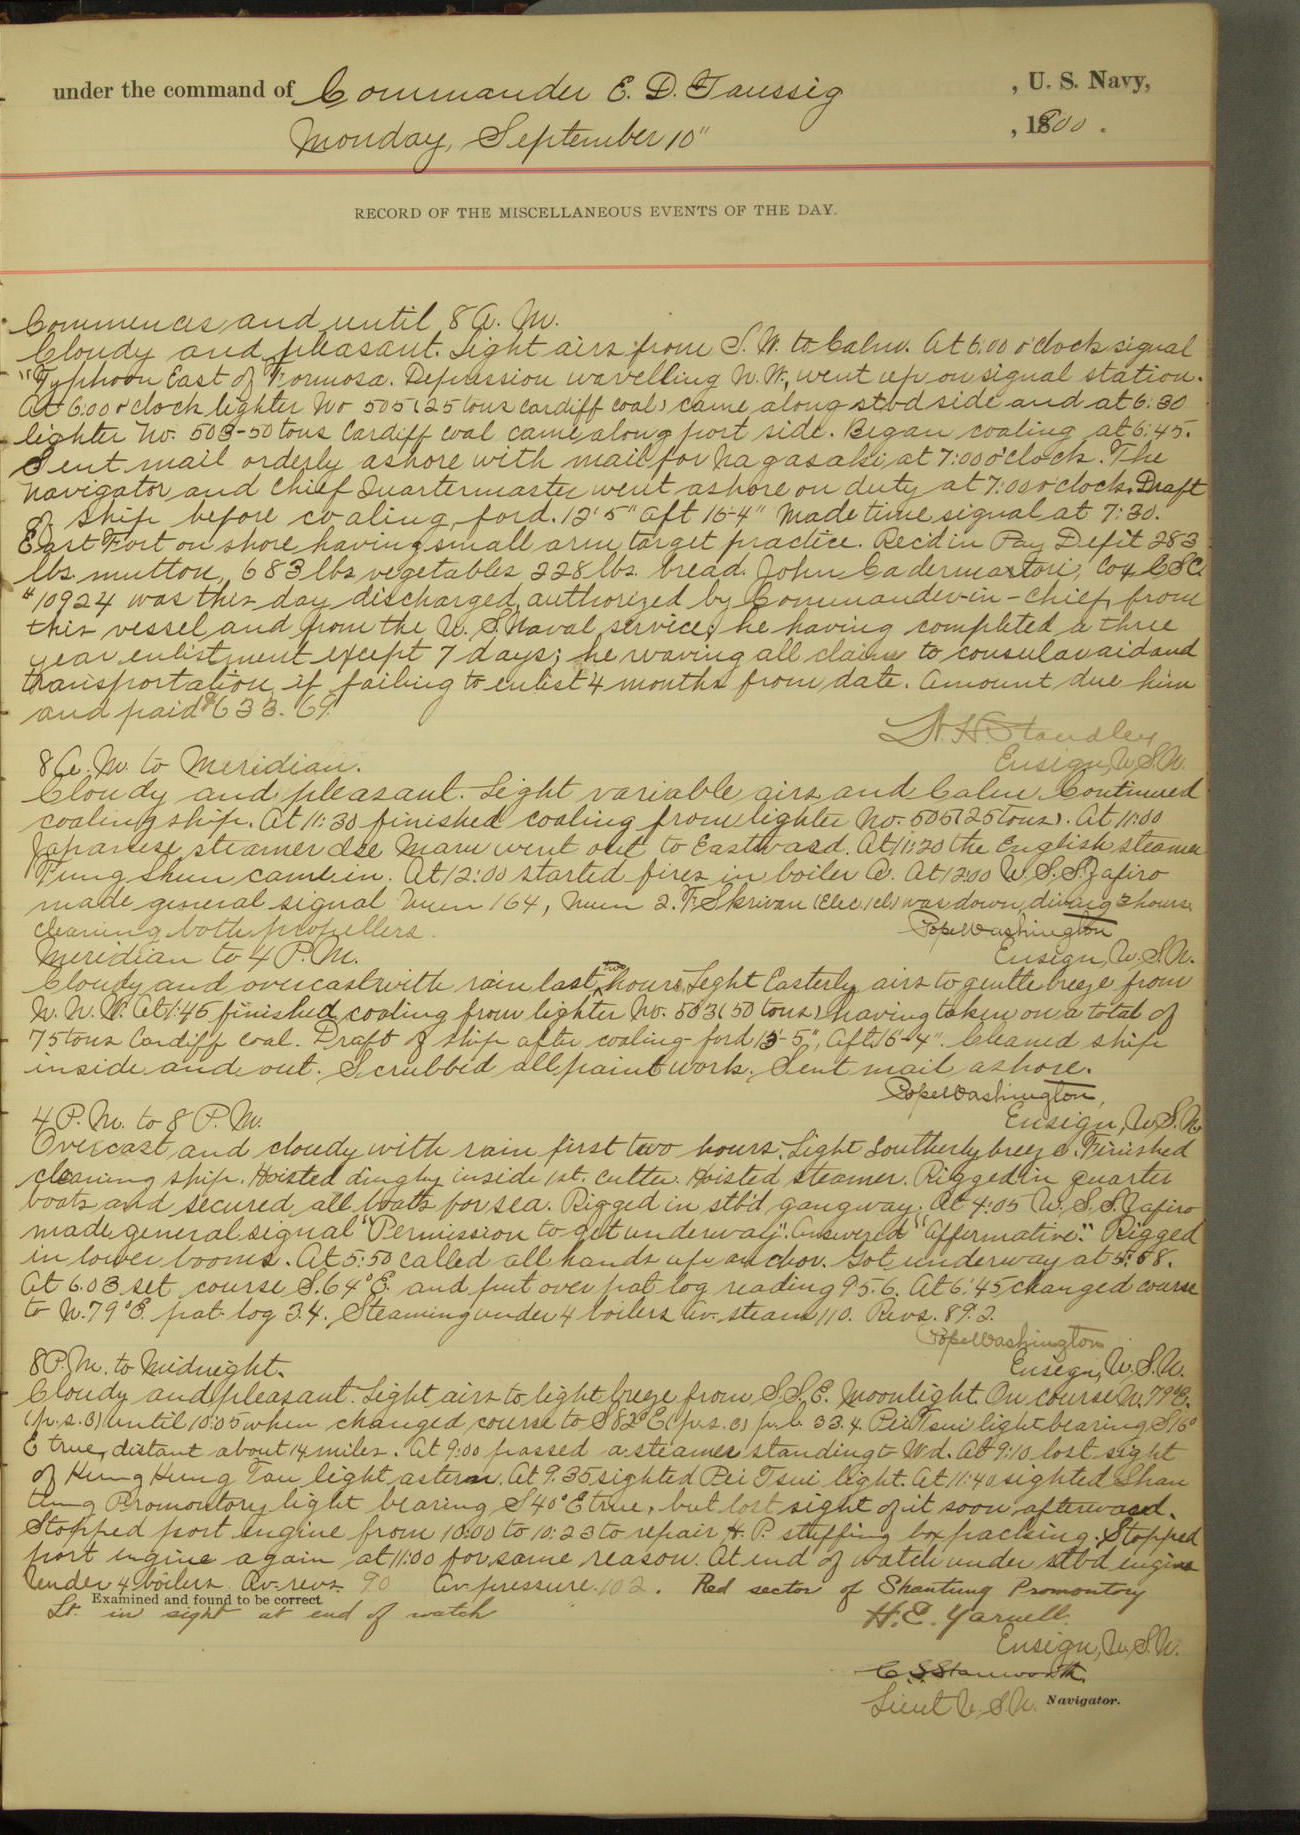 under the command of Commander E. D. Taussig, U. S. Navy,
Monday, September 10", 1900.
RECORD OF THE MISCELLANEOUS EVENTS OF THE DAY.
Commences and until 8 A. M.
Cloudy and pleasant. Light airs from S. W. to Calm. At 6:00 o'clock signal
"Typhoon East of Formosa. Depression travelling N. W., went up on signal station.
At 6:00 o'clock lighter No 505 (25 tons Cardiff coal) came along stbd side and at 6:30
lighter No. 503-50 tons Cardiff coal came along port side. Began coaling at 6:45.
Sent mail orderly ashore with mail for Nagasaki at 7:00 o'clock. The
Navigator and Chief Quartermaster went ashore on duty at 7:00 o'clock. Draft
of ship before coaling, ford. 12' 5" aft 15-4" Made time signal at 7:30.
East Fort on shore having small arm target practice. Rec'd in Pay Dept 283
lbs. mutton, 683 lbs vegetables 228 lbs. bread. John Cadermartori, Cox CSC
#10924 was this day discharged, authorized by Commander-in-Chief, from
this vessel and from the U. S. Naval service, he having completed a three
year enlistment except 7 days; he waving all claims to consular aid and
transportation if failing to enlist 4 months from date. Amount due him
and paid $633.69.
W. H. Standley
Ensign, U.S.N.
8 A. M. to Meridian.
Cloudy and pleasant. Light variable airs and Calm. Continued
coaling ship. At 11:30 finished coaling from lighter No. 505 (25 tons). At 11:00
Japanese steamer Ise Maru went out to Eastward. At 11:20 the English steamer
Tung Shun came in. At 12:00 started fires in boiler A. At 12:00 U. S. S. Zafiro
made general signal Num 164, Num 2. F. Skrivan (Elec 1cl) was down, diving 3 hours
clearing both propellers.
Pope Washington
Ensign, U. S. N.
Meridian to 4 P. M.
Cloudy and overcast with rain last two hours. Light Easterly airs to gentle breeze from
N. N. W. At 1:45 finished coaling from lighter No. 503 (50 tons) having taken on a total of
75 tons Cardiff coal. Draft of ship after coaling ford 13'-5", Aft 15'-4". Cleaned ship
inside and out. Scrubbed all paint work. Sent mail ashore.
Pope Washington,
Ensign, U.S.N.
4 P. M. to 8 P. M.
Overcast and cloudy with rain first two hours. Light Southerly breeze. Finished
cleaning ship. Hoisted dinghy inside 1st. cutter. Hoisted steamer. Rigged in quarter
boats and secured all boats for sea. Rigged in stb'd gangway. At 4:05 U. S. S. Zafiro
made general signal "Permission to get underway". Answered "Affirmative". Rigged
in lower booms. At 5:50 called all hands up anchor. Got underway at 5:58.
At 6.03 set course S. 64° E. and put over pat log reading 95.6. At 6:45 changed course
to N. 79° E. pat log 3.4. Steaming under 4 boilers Av. steam 110. Revs. 89.2.
Pope Washington
Ensign, U. S. N.
8 P. M. to Midnight.
Cloudy and pleasant. Light airs to light breeze from S. S. E. Moonlight. On course N. 79° E.
(p. s. c) until 10:05 when changed course to S 82° E (p. s. c) p. l. 33.4. Pei Tsui light bearing S 16°
E true, distant about 14 miles. At 9:00 passed a steamer standing to Wd. At 9:10 lost sight
of Kung Kung Tau light astern. At 9.35 sighted Pei Tsui light. At 11:40 sighted Shan
tung Promontory light bearing S 40° E true, but lost sight of it soon afterward.
Stopped port engine from 10:00 to 10:23 to repair H. P. stuffing box packing. Stopped
port engine again at 11:00 for same reason. At end of watch under stbd engine
under 4 boilers. Av. revs. 90 Av. pressure. 102. Red sector of Shantung Promontory
Examined and found to be correct
Lt. in sight at end of watch
H. E. Yarnell.
Ensign, U. S. N.
C. S. Stanworth
Lieut U. S. N. Navigator.